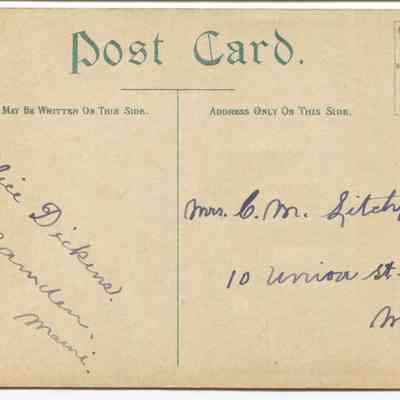 Post Card.
MAY BE WRITTEN ON THIS SIDE.
ADDRESS ONLY ON THIS SIDE.
Dickens.
Camden.
Maine.
Mrs. C. M.
10 Union St.